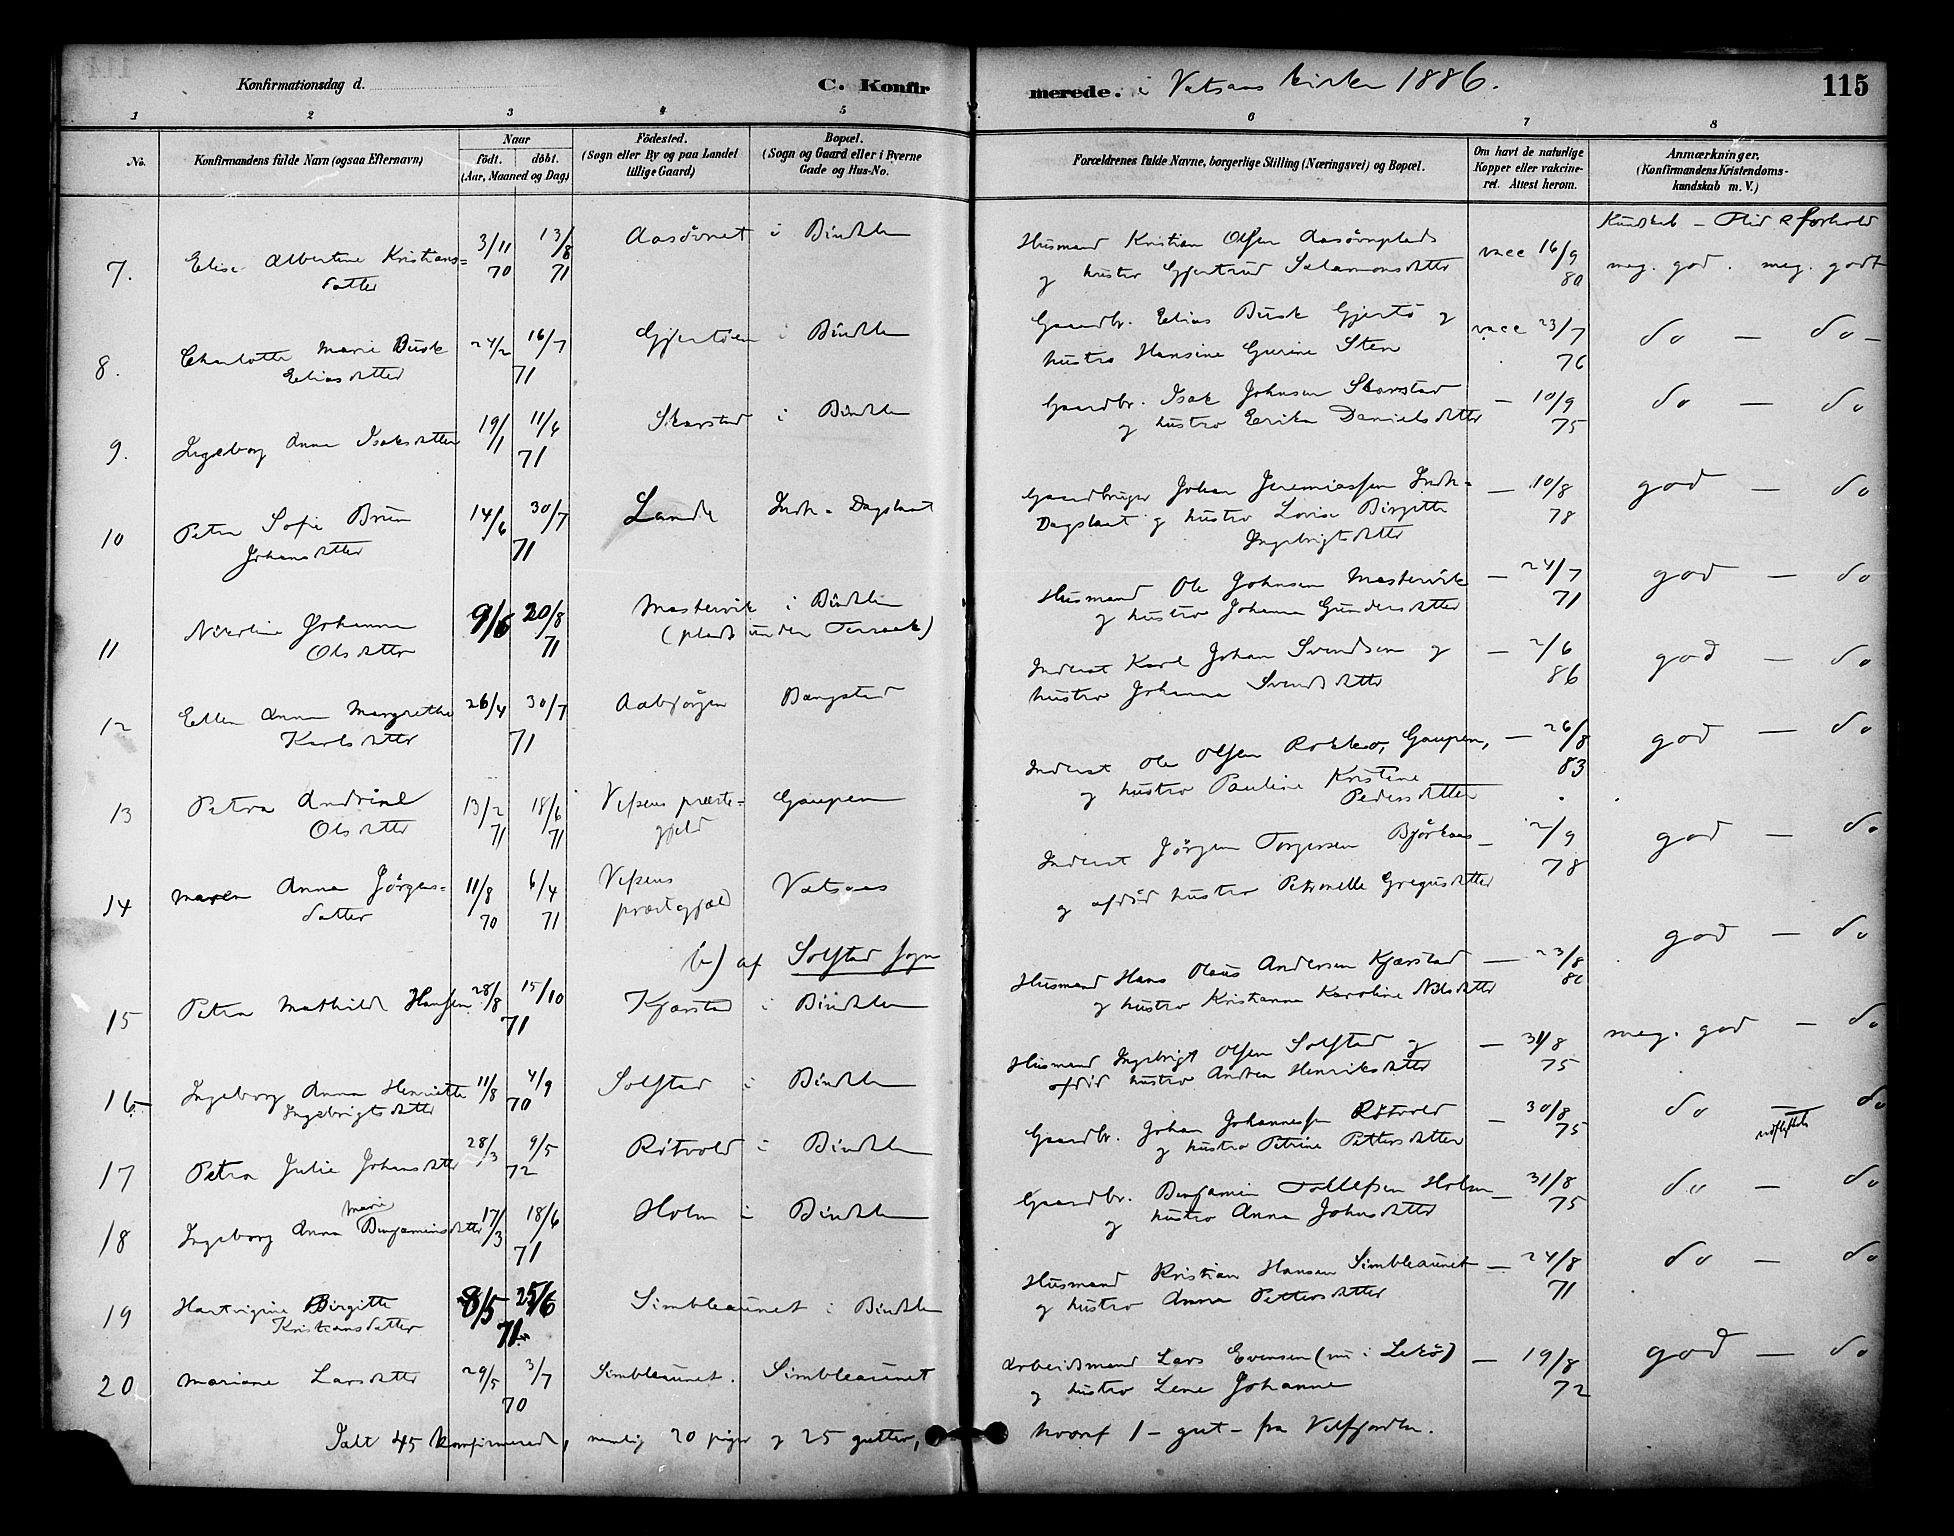 Konfirmationsdag d. C. Konfirmerede. i Vatsaas kirke 1886. 115
1 2 3 4 5 6 7 8
No. Konfirmandens fulde Navn (ogsaa Efternavn) Naar födt. döbt. (Aar, Maaned og Dag) Födested. (Sogn eller By og paa Landet tillige Gaard) Bopæl. (Sogn og Gaard eller i Byerne Gade og Hus-No. Forældrenes fulde Navne, borgerlige Stilling (Næringsvei) og Bopæl. Om havt de naturlige Kopper eller vakcineret. Attest herom. Anmærkninger. (Konfirmandens Kristendomskundskab m. V.)
Kundskab - Flid & forhold
7. Elise Albertine Kristiansdatter 3/11 70 13/8 71 Aasövnet i Bindalen Husmand Kristian Olsen Aasövnplads og hustro Gjertrud Salamonsdatter vacc 16/9 80 meg. god. meg. godt
8. Charlotte Marie Busk Eliasdatter 24/2 16/7 71 Gjertöen i Bindalen Gaardbr. Elias Busk Gjertö og hustro Hansine Gurine Sten vacc 23/7 76 do - do -
9. Ingeborg Anna Isaksdatter 19/1 11/6 71 Skarstad i Bindalen Gaardbr. Isak Johnsen Skarstad og hustro Erika Danielsdatter - 10/9 75 do - do
10 Petra Sofie Brun Johansdatter 14/6 30/7 71 Lande Indr. Dagslaat Gaardbruger Johan Jeremiassen Indr. Dagslaat og hustro Lovise Birgitte Ingebrigtsdatter - 10/8 78 god - do
11 Nikoline Johanna Olsdatter 9/6 20/8 71 Mastervik i Bindalen (plads under Terraak) Husmand Ole Johnsen Mastervik og hustro Johanna Gundersdatter - 24/7 71 god - do
12 Ellen Anna Margrethe Karlsdatter 26/4 30/7 71 Aabjörgen Bangstad Inderst Karl Johan Svendsen og hustro Johanna Svendsdatter - 2/6 86 god - do
13 Petra Andrine Olsdatter 13/2 71 18/6 71 Vefsens præstegjeld Gaupen Inderst Ole Olsen Gaupen, og hustro Pauline Kristine Pedersdatter - 26/8 83 god - do
14 Maren Anna Jörgensdatter 11/8 70 6/4 71 Vefsens præstegjæld Vatsaas Inderst Jörgen Torgersen Björkaas og afdöd hustro Petronelle Gregusdatter - 2/9 78 god - do
b) af Solstad sogn
15 Petra Mathilde Hansen 28/8 15/10 71 Kjærstad i Bindalen Husmand Hans Olaus Andersen Kjærstad og hustro Kristianna Karoline Nilsdatter - 23/8 80 god - do
16 Ingeborg Anna Henriette Ingebrigtsdatter 11/8 4/9 70 Solstad i Bindalen Husmand Ingebrigt Olsen Solstad og afdöd hustro Andrea Henriksdatter - 31/8 75 meg. god - do
17 Petra Julie Johansdatter 28/3 9/5 72 Rötvold i Bindalen Gaardbr. Johan Johannessen Rötvold og hustro Petrine Pettersdatter - 30/8 75 do - do udflyttet
18 Ingeborg Anna Marie Benjaminsdatter 17/3 18/6 71 Holm i Bindalen Gaardbr. Benjamin Tollefsen Holm og hustro Anna Johnsdatter - 31/8 75 do - do
19 Hartvigine Birgitte Kristiansdatter 8/5 25/6 71. Simbleaunet i Bindalen Husmand Kristian Hansen Simbleaunet og hustro Anna Pettersdatter - 24/8 71 do - do
20 Mariane Larsdatter 29/5 3/7 70 Simbleaunet. Simbleaunet Arbeidsmand Lars Evensen (nu i Lekö) og hustro Lene Johanne - 19/8 72 god - do
Ialt 45 konfirmerede, nemlig 20 piger og 25 gutter, hvoraf 1 - gut - fra Velfjorden.